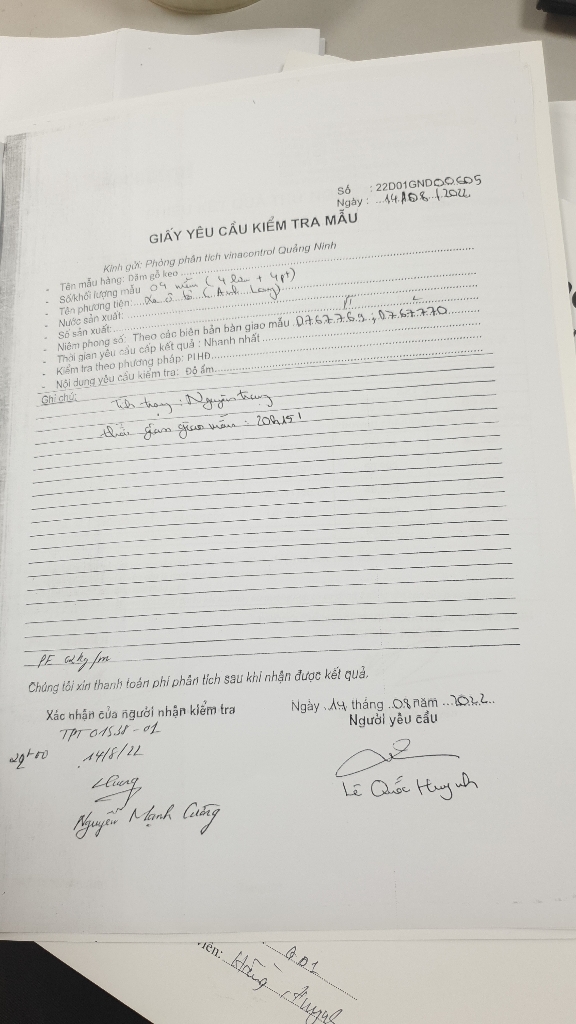 Số : 22D01GND00605
Ngày : 14/08/2022
GIẤY YÊU CẦU KIỂM TRA MẪU
Kính gửi: Phòng phân tích vinacontrol Quảng Ninh
- Tên mẫu hàng: Dăm gỗ keo
- Số/khối lượng mẫu 04 mẫu (4 lần + 4pt)
- Tên phương tiện: Xe ô tô (Anh Long)
- Nước sản xuất:
- Số sản xuất:
- Niêm phong số: Theo các biên bản bàn giao mẫu 0767769; 0767770
- Thời gian yêu cầu cấp kết quả : Nhanh nhất
- Kiểm tra theo phương pháp: PIHĐ
- Nội dung yêu cầu kiểm tra: Độ ẩm.
Ghi chú:
Tình trạng: Nguyên trạng
thời gian giao mẫu: 20h15'
PE 02kg/m
Chúng tôi xin thanh toán phí phân tích sau khi nhận được kết quả.
Xác nhận của người nhận kiểm tra
TPT 01538-01
14/8/22
Cường
Nguyễn Mạnh Cường
Ngày 14 tháng 08 năm 2022
Người yêu cầu
Lê Quốc Huynh
GD1
viên: